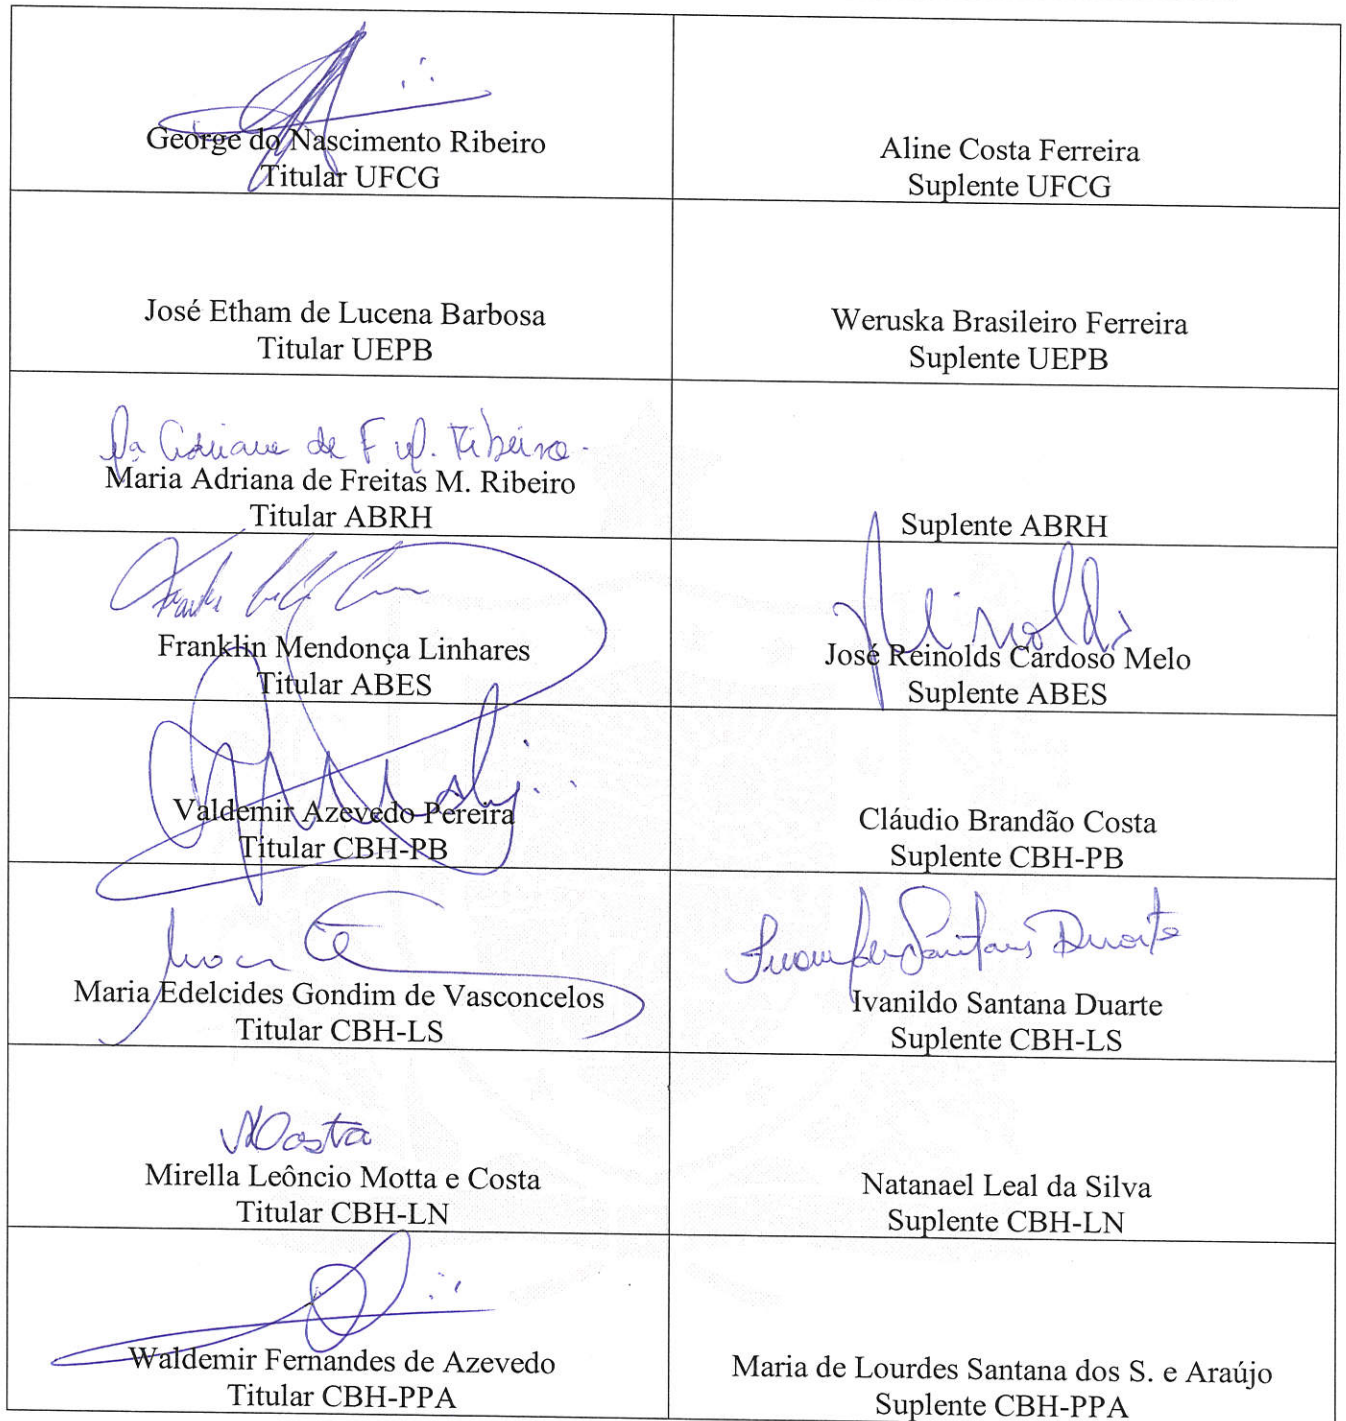 George do Nascimento Ribeiro
Titular UFCG
Aline Costa Ferreira
Suplente UFCG
José Etham de Lucena Barbosa
Titular UEPB
Weruska Brasileiro Ferreira
Suplente UEPB
Mª Adriana de F M. Ribeiro
Maria Adriana de Freitas M. Ribeiro
Titular ABRH
Suplente ABRH
Franklin Mendonça Linhares
Titular ABES
Reinolds
José Reinolds Cardoso Melo
Suplente ABES
Valdemir Azevedo Pereira
Titular CBH-PB
Cláudio Brandão Costa
Suplente CBH-PB
Maria Edelcides Gondim de Vasconcelos
Titular CBH-LS
Santana Duarte
Ivanildo Santana Duarte
Suplente CBH-LS
MCosta
Mirella Leôncio Motta e Costa
Titular CBH-LN
Natanael Leal da Silva
Suplente CBH-LN
Waldemir Fernandes de Azevedo
Titular CBH-PPA
Maria de Lourdes Santana dos S. e Araújo
Suplente CBH-PPA